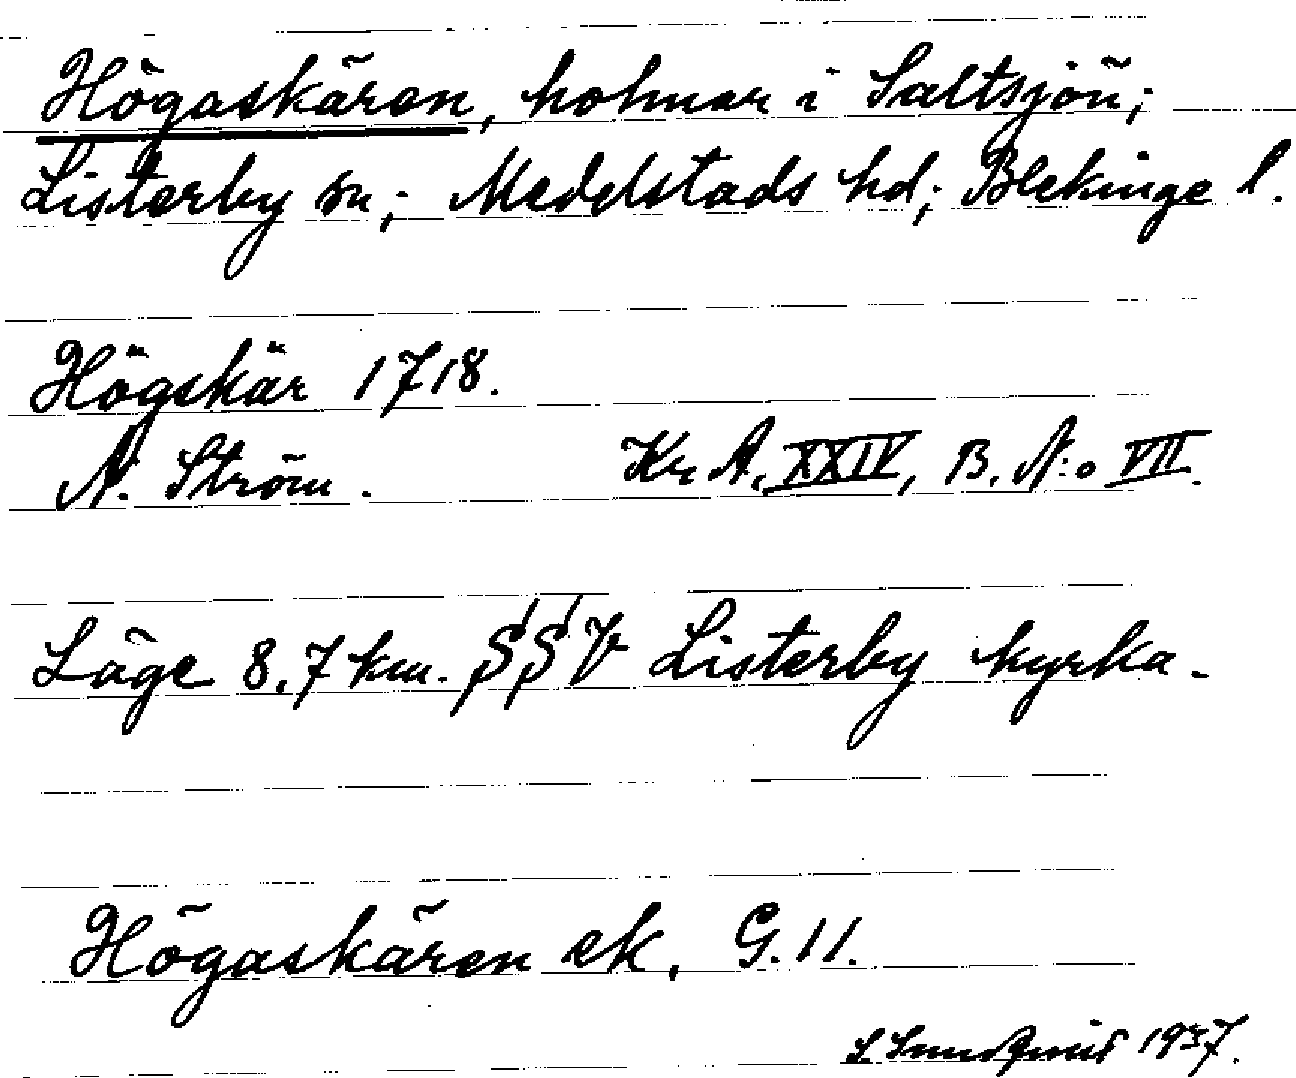 Högaskären, holmar i Saltsjön;
Listerby sn; Medelstads hd; Blekinge l.
Högskär 1718.
N. Ström. Kr. A. XXIV, B. N:o VII.
Läge 8,7 km. SSV Listerby kyrka.
Högaskären ek. G. 11.
S. Sundquist 1937.